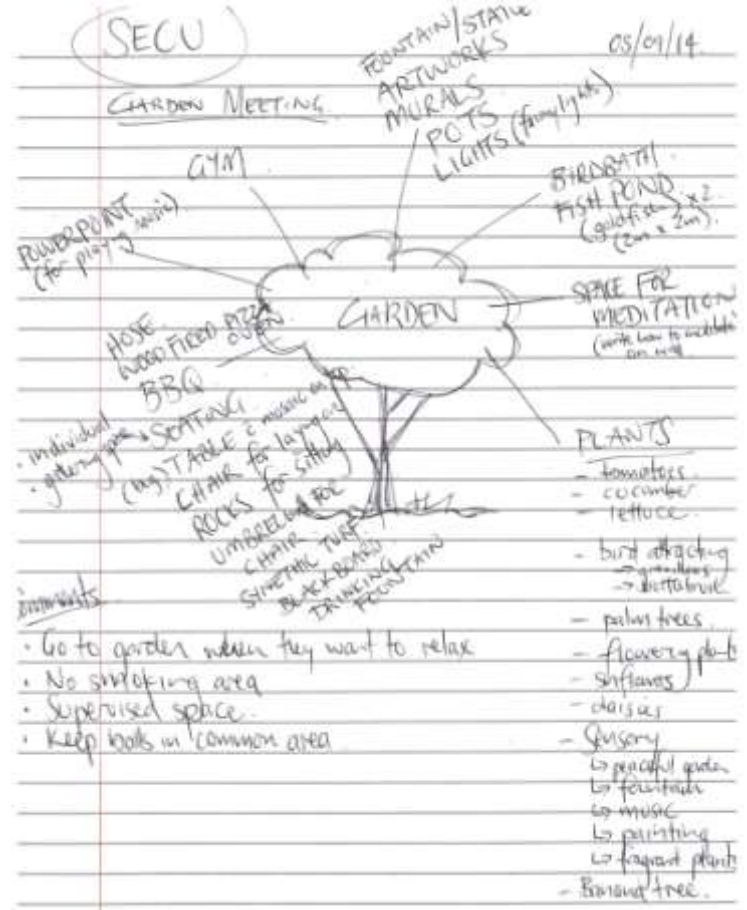 SECU
05/09/14
GARDEN MEETING
FOUNTAIN/STATUE
ARTWORKS
MURALS
POTS
LIGHTS (fairy lights)
GYM
BIRDBATH/
FISH POND
(goldfish) x2
(2m x 2m).
POWERPOINT
(for playing music).
GARDEN
SPACE FOR
MEDITATION
(write how to meditate
on wall
HOSE
WOOD FIRED PIZZA
OVEN
BBQ
SEATING
• individual
• gathering space
(big) TABLE mosaic on top
CHAIR for laying on
ROCKS for sitting
UMBRELLA FOR
CHAIR
SYNETHIC TURF
BLACKBOARD
DRINKING
FOUNTAIN
PLANTS
- tomatoes
- cucumber
- lettuce
- bird attracting
→
→
- palm trees
- flowery plants
- sunflowers
- daisies
- Sensory
↳ peaceful garden
↳ fountain
↳ music
↳ painting
↳ fragrant plants
- Banana tree.
omments
• Go to garden when they want to relax
• No smoking area
• Supervised space.
• Keep balls in common area